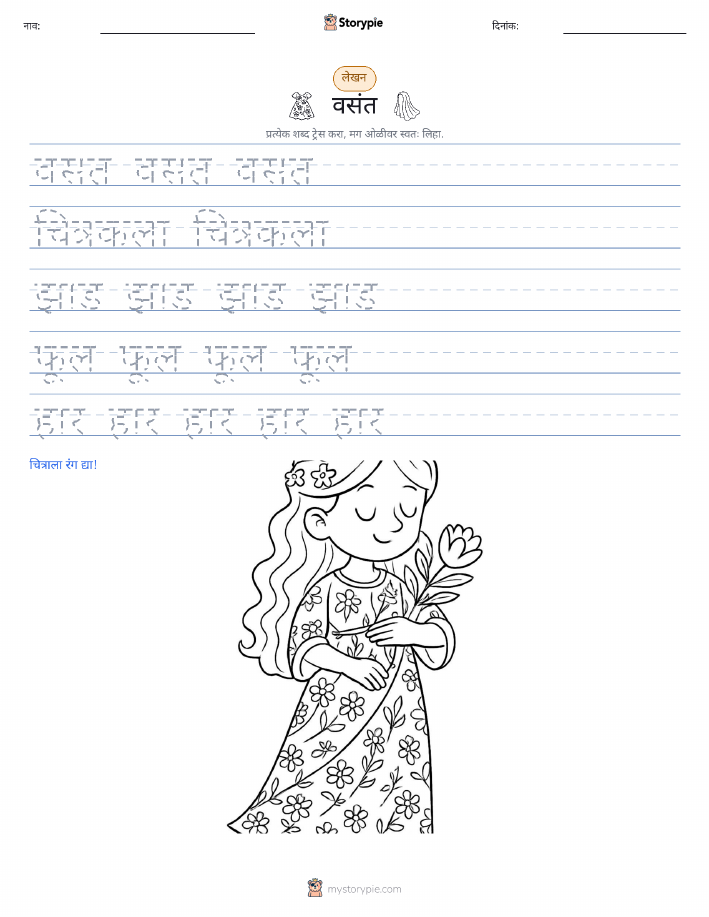 नाव:
Storypie
दिनांक:
लेखन
वसंत
प्रत्येक शब्द ट्रेस करा, मग ओळीवर स्वतः लिहा.
वसंत वसंत वसंत
चित्रकला चित्रकला
झाड झाड झाड झाड
फूल फूल फूल फूल
हार हार हार हार हार
चित्राला रंग द्या!
mystorypie.com